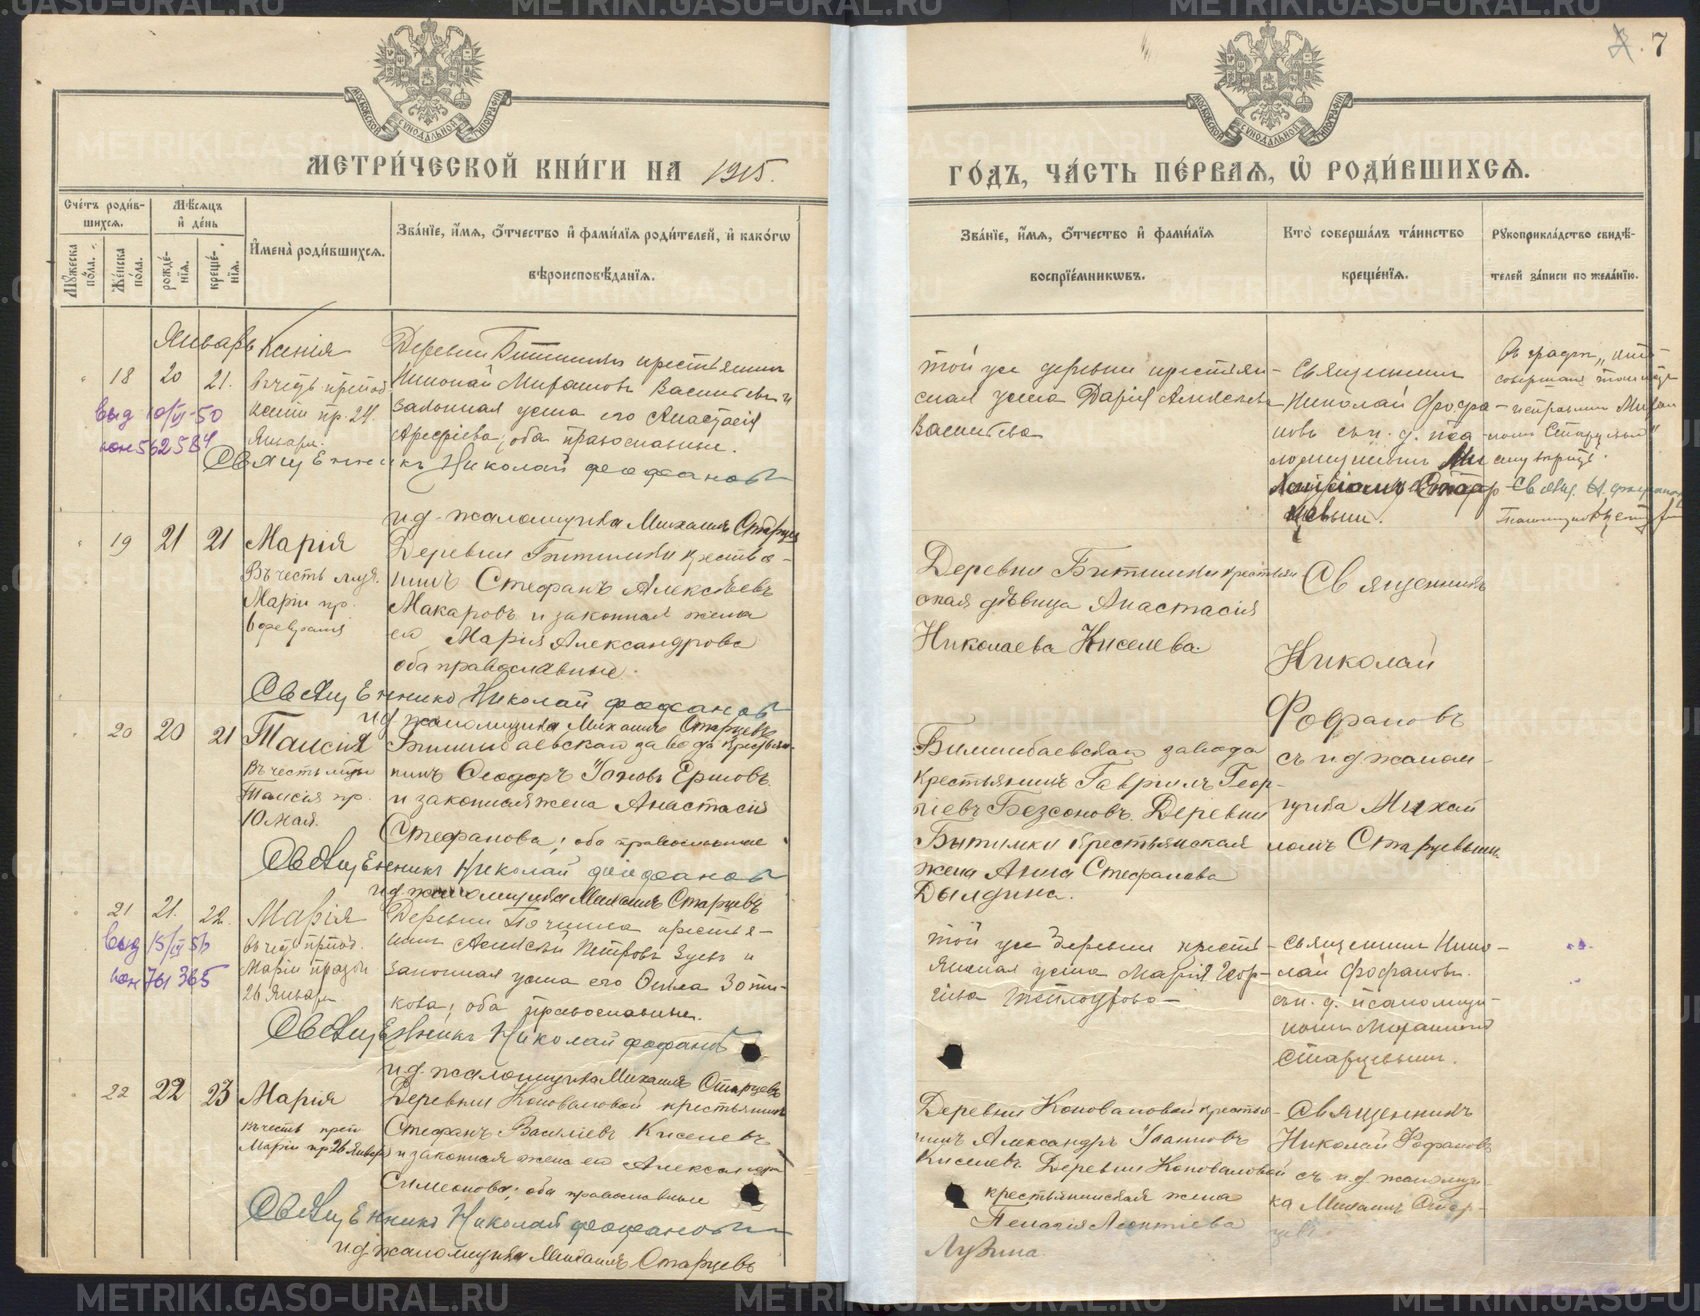 7
МОСКОВСКОЙ СѴНОДАЛЬНОЙ ТИПОГРАФІИ
МОСКОВСКОЙ СѴНОДАЛЬНОЙ ТИПОГРАФІИ
МЕТРИ́ЧЕСКОЙ КНИ́ГИ НА 1915.
ГО́ДЪ, ЧА́СТЬ ПЕ́РВАЯ, Ѽ РОДИ́ВШИХСЯ.
Сче́тъ роди́в-
шихся.
Мѣ́сяцъ
и҆ де́нь
Мꙋ́жеска
по́ла.
Же́нска
по́ла.
рожде́-
нїя.
креще́-
нїя.
И҆мена̀ роди́вшихся.
Зва́нїе, и҆́мя, ѻ҆́тчество и҆ фами́лїя роди́телей, и҆ како́гѡ
вѣроисповѣ́данїя.
Зва́нїе, и҆́мя, ѻ҆́тчество и҆ фами́лїя
воспрїе́мникѡвъ.
Кто̀ соверша́лъ та́инство
креще́нїя.
Рꙋкоприкла́дство свидѣ́-
телей за́писи по жела́нїю.
Январь
18 20 21.
Ксенія
въ честь препод.
Ксении пр. 24
Января.
Деревни Битимки крестьянин
Николай Миронов Васильев и
законная жена его Анастасія
Арефіева; оба православные.
выд 10/VI-50
562584
Священникъ Николай Фофановъ
и д. псаломщика Михаилъ Старцевъ
той же деревни крестьян-
ская жена Дарія Алексеева
Васильева
Священник
Николай Фофа-
новъ съ и. д. пса-
ломщика
19 21 21
Марія
Въ честь муч.
Маріи пр.
6 февраля
Деревни Битимки крестья-
нинъ Стефанъ Алексѣевъ
Макаровъ и законная жена
его Марія Александрова
оба православные.
Священникъ Николай Фофановъ
и д. псаломщика Михаилъ Старцевъ
Деревни Битимки крестьян
ская дѣвица Анастасія
Николаева Киселева.
Священникъ
Николай
Фофановъ
съ и д псалом-
щика Михаи
ломъ Старцевым.
20 20 21
Таисія
Въ честь
Таисія пр.
10 мая.
Билимбаевскаго завода крестьян-
нинъ Ѳеодоръ Іоновъ Ершовъ
и законная жена Анастасія
Стефанова; оба православные
Священникъ Николай Фофановъ
и д. псаломщика Михаилъ Старцевъ
Билимбаевскаго завода
крестьянинъ Гавриилъ Геор-
гіевъ Безсоновъ. Деревни
Битимки крестьянская
жена Анна Стефанова
Дылдина.
21 21. 22.
Марія
въ чест препод.
Маріи празд
26 Января
Деревни Починка крестья-
нин Алексѣй Петровъ Зуевъ и
законная жена его Ѳекла Зоти-
кова; оба православные.
выд 15/II 51
761365
Священникъ Николай Фофановъ
и д. псаломщика Михаилъ Старцевъ
той же деревни кресть-
янская жена Марія Геор-
гіева
Священник Нико-
лай Фофановъ.
съ и. д. псаломщи-
комъ Михаиломъ
Старцевым.
22 22 23
Марія
Въ честь преп
Маріи пр 26 Января
Деревни Коноваловой крестьянинъ
Стефанъ Василіевъ Киселевъ
и законная жена его Александра
Симеонова; оба православные
Священникъ Николай Фофановъ
и д псаломщика Михаилъ Старцевъ
Деревни Коноваловой крестья-
нинъ Александръ Іоанновъ
Киселевъ. Деревни Коноваловой
крестьянинская жена
Пелагія Леонтіева
Лузина
Священникъ
Николай Фофановъ
съ и д. псаломщи-
ка Михаилъ Стар-
цевъ.